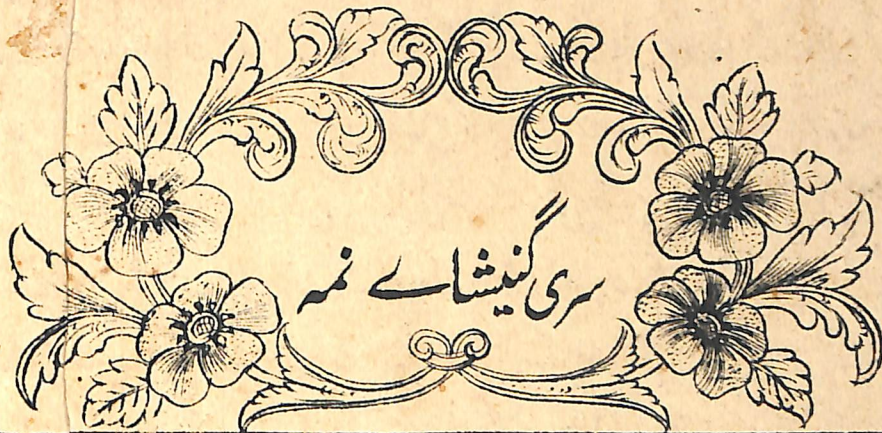 سری گنیشاے نمہ